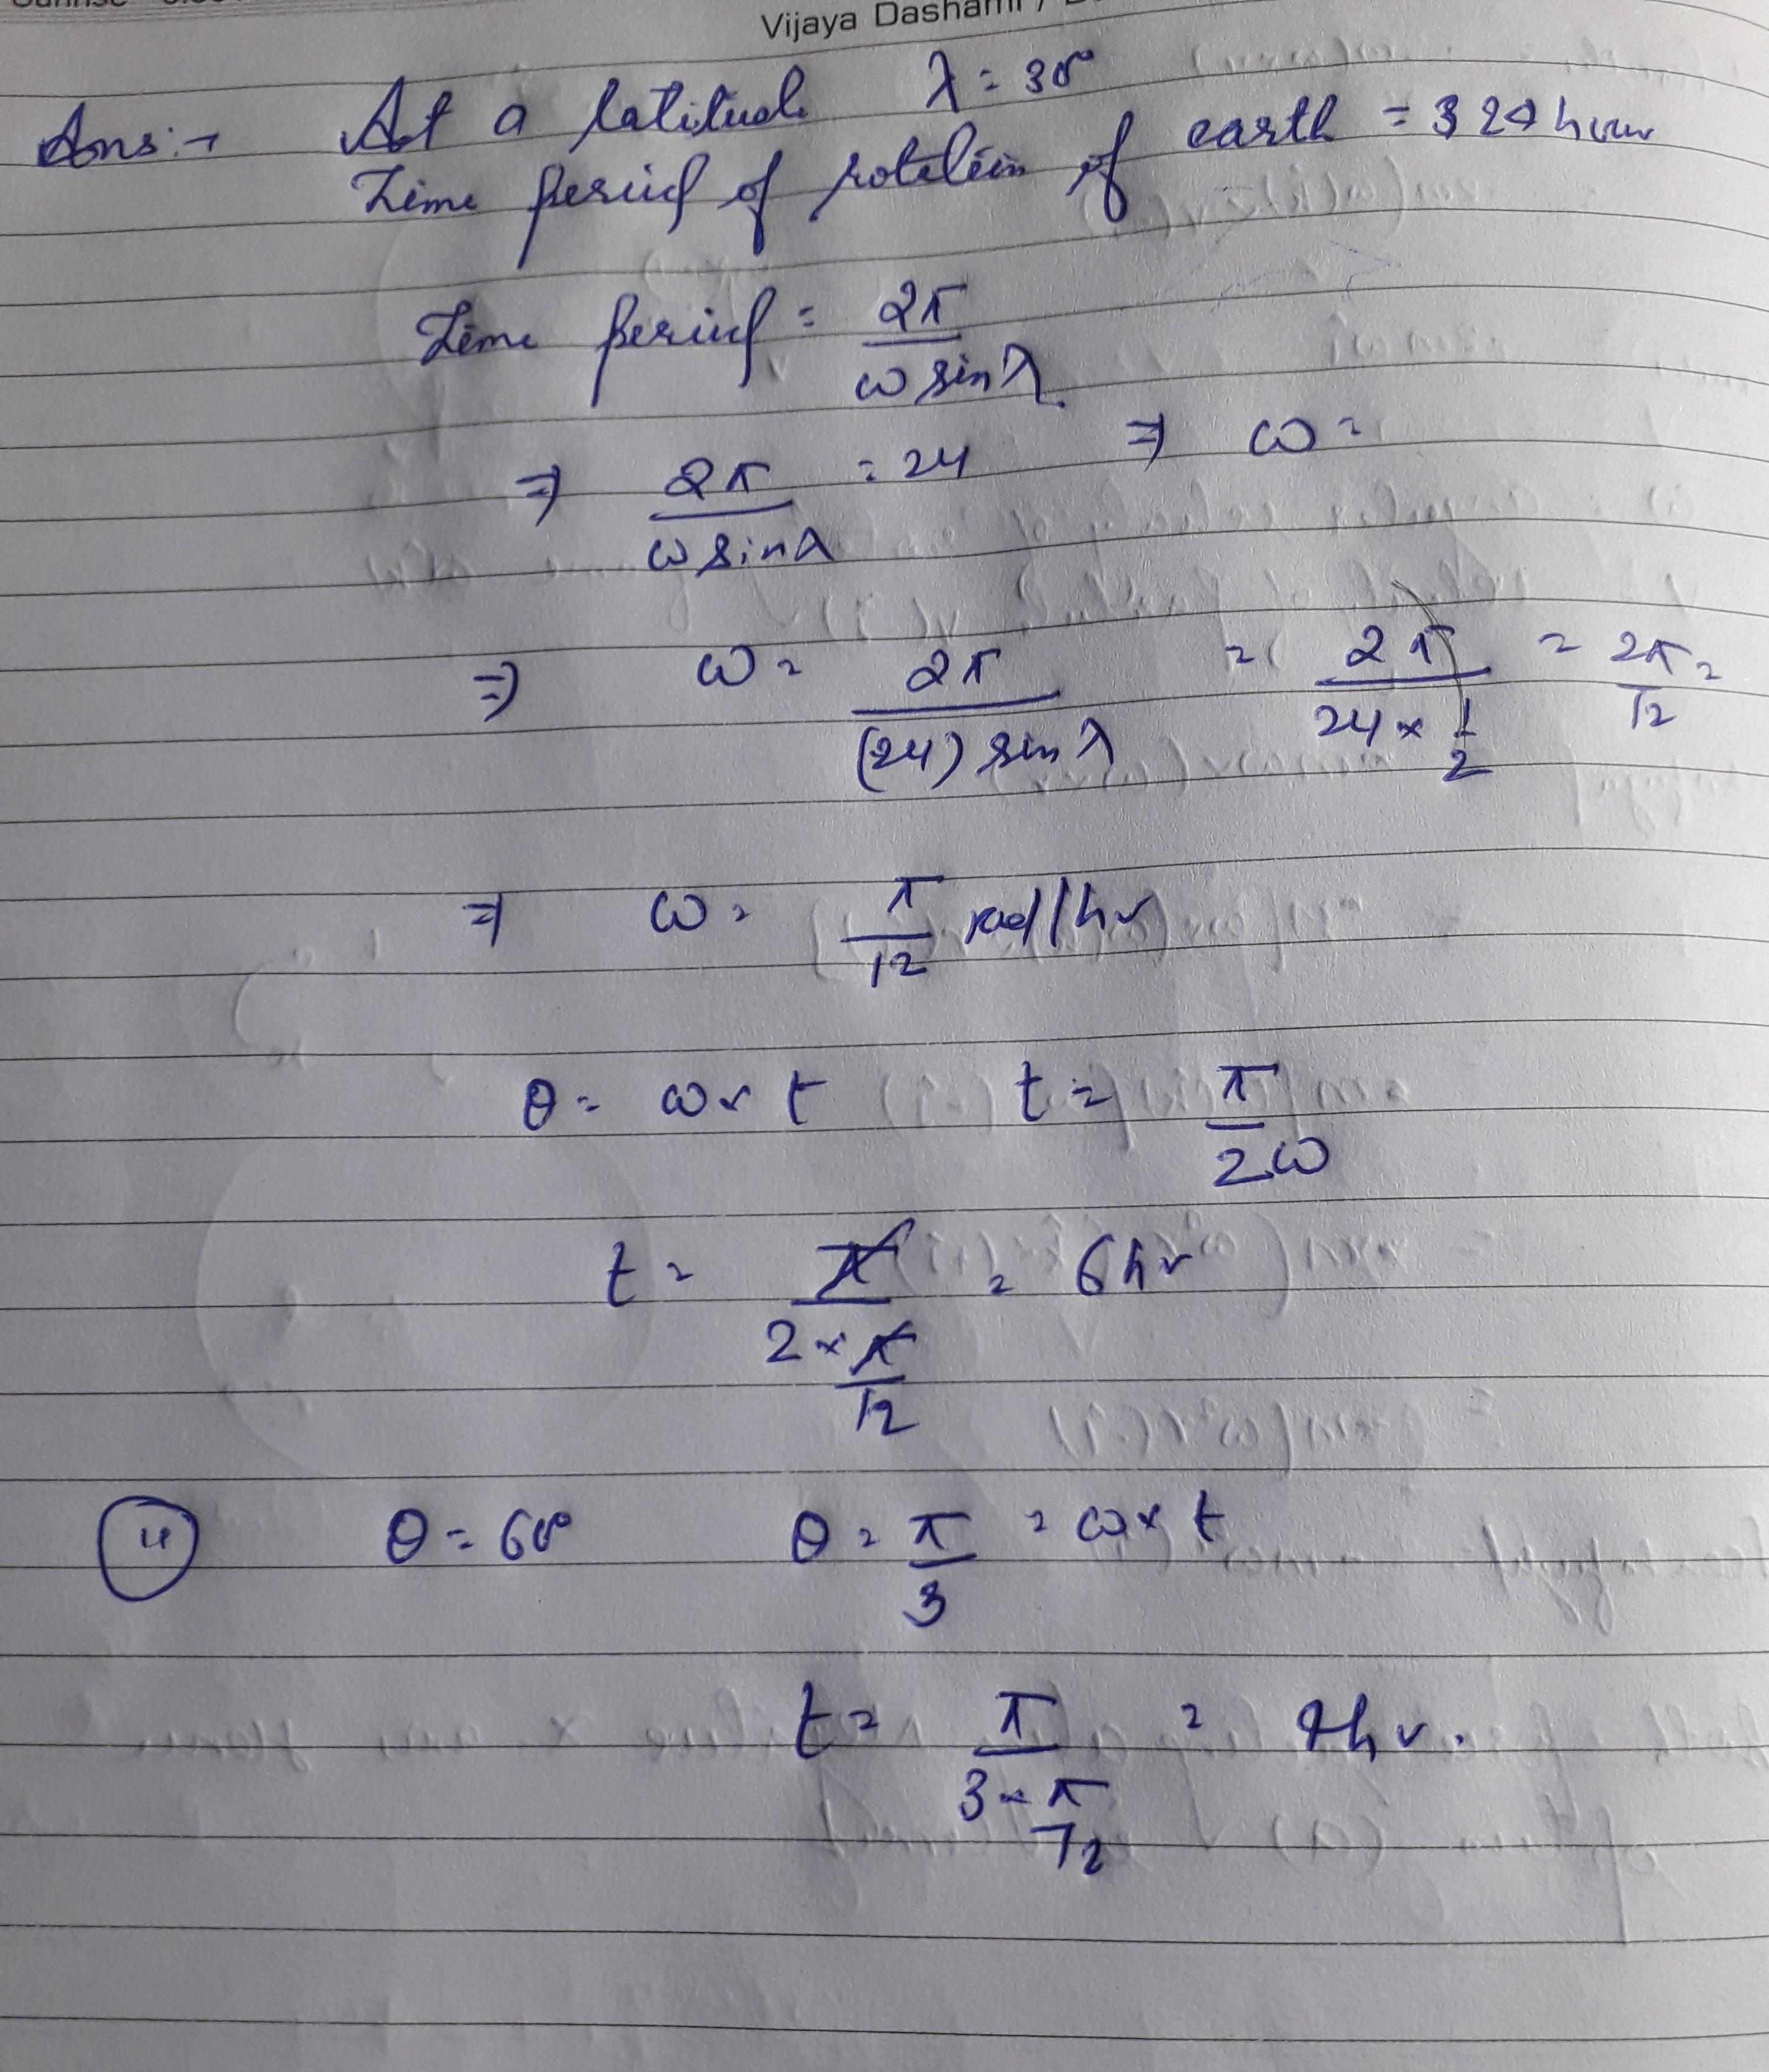 Vijaya Dashami /
Ans:→ At a latitude λ = 30°
Time period of rotation of earth = 24 hour
Time period = 2π / ω sin λ
⇒ 2π / ω sin λ = 24 ⇒ ω =
⇒ ω = 2π / (24) sin λ = 2π / 24 × 1/2 = 2π / 12 =
⇒ ω = π / 12 rad/hr
θ = ω × t t = π / 2ω
t = π / 2 × π/12 = 6 hr
(ii) θ = 60° θ = π / 3 = ω × t
t = π / 3 × π/12 = 4 hr.